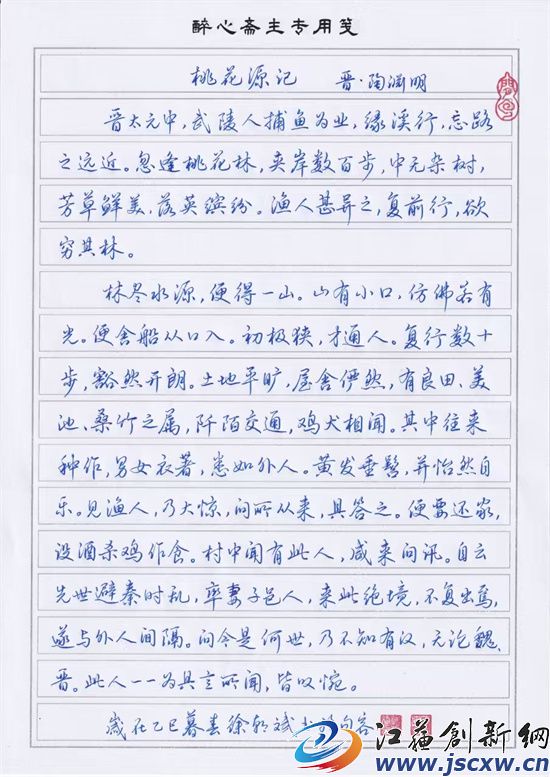 醉心斋主专用笺
桃花源记 晋·陶渊明
晋太元中，武陵人捕鱼为业，缘溪行，忘路
之远近。忽逢桃花林，夹岸数百步，中无杂树，
芳草鲜美，落英缤纷。渔人甚异之，复前行，欲
穷其林。
林尽水源，便得一山。山有小口，仿佛若有
光。便舍船从口入。初极狭，才通人。复行数十
步，豁然开朗。土地平旷，屋舍俨然，有良田、美
池、桑竹之属，阡陌交通，鸡犬相闻。其中往来
种作，男女衣著，悉如外人。黄发垂髫，并怡然自
乐。见渔人，乃大惊，问所从来，具答之。便要还家，
设酒杀鸡作食。村中闻有此人，咸来问讯。自云
先世避秦时乱，率妻子邑人，来此绝境，不复出焉，
遂与外人间隔。问今是何世，乃不知有汉，无论魏、
晋。此人一一为具言所闻，皆叹惋。
岁在乙巳暮春徐
江苏创新网
www.jscxw.cn